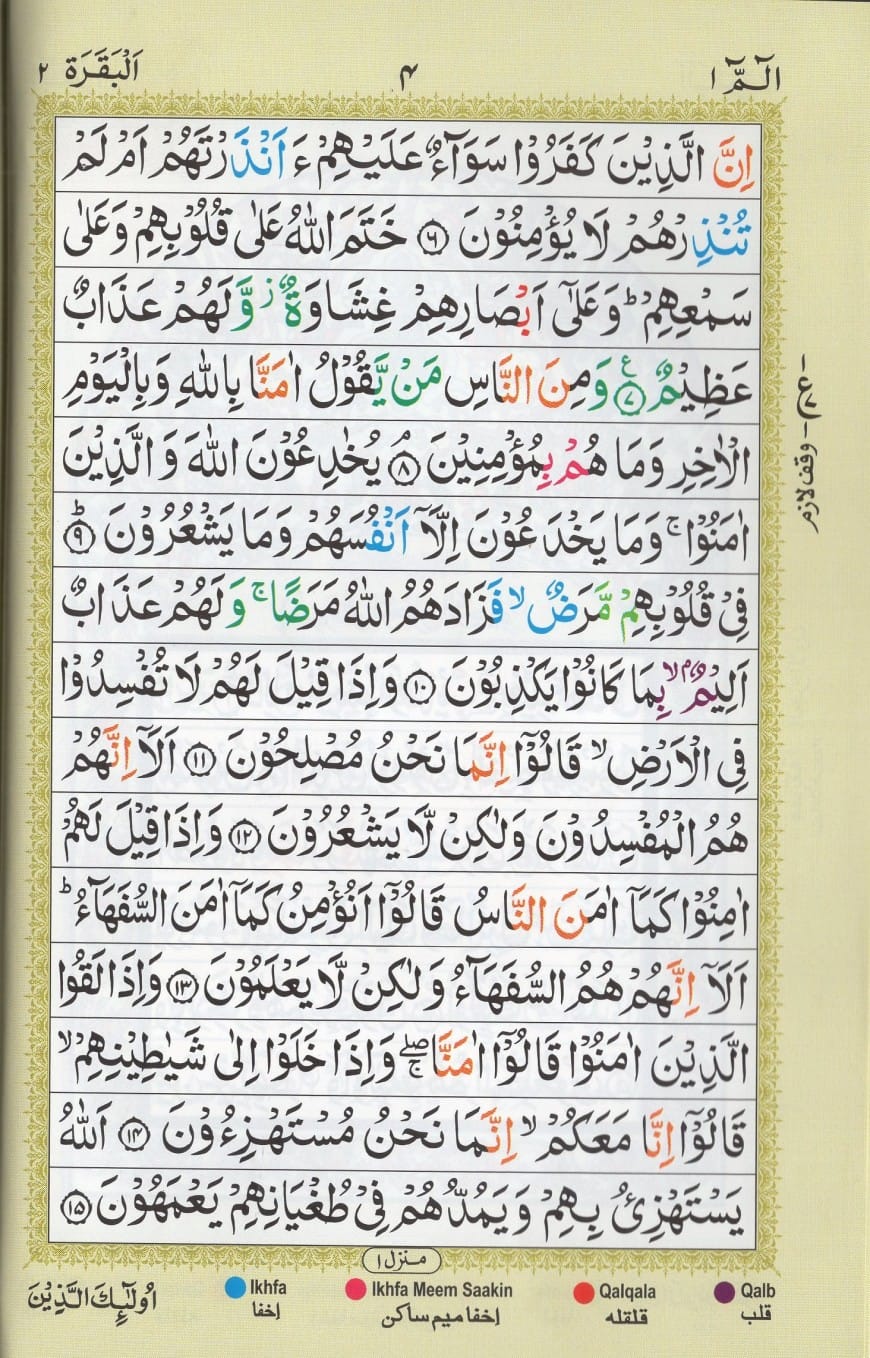 الٓمّٓ ١ ۴ اَلْبَقَرَة ٢
اِنَّ الَّذِيْنَ كَفَرُوْا سَوَآءٌ عَلَيْهِمْ ءَاَنْذَرْتَهُمْ اَمْ لَمْ
تُنْذِرْهُمْ لَا يُؤْمِنُوْنَ ۝۶ خَتَمَ اللّٰهُ عَلٰى قُلُوْبِهِمْ وَعَلٰى
سَمْعِهِمْ ؕ وَعَلٰٓى اَبْصَارِهِمْ غِشَاوَةٌ ز وَّلَهُمْ عَذَابٌ
عَظِيْمٌ ۝۷ ع وَمِنَ النَّاسِ مَنْ يَّقُوْلُ اٰمَنَّا بِاللّٰهِ وَبِالْيَوْمِ
الْاٰخِرِ وَمَا هُمْ بِمُؤْمِنِيْنَ ۘ۝۸ يُخٰدِعُوْنَ اللّٰهَ وَالَّذِيْنَ
اٰمَنُوْا ۚ وَمَا يَخْدَعُوْنَ اِلَّآ اَنْفُسَهُمْ وَمَا يَشْعُرُوْنَ ؕ۝۹
فِىْ قُلُوْبِهِمْ مَّرَضٌ ۙ فَزَادَهُمُ اللّٰهُ مَرَضًا ۚ وَلَهُمْ عَذَابٌ
اَلِيْمٌ ۢ ۙ بِمَا كَانُوْا يَكْذِبُوْنَ ۝۱۰ وَاِذَا قِيْلَ لَهُمْ لَا تُفْسِدُوْا
فِى الْاَرْضِ ۙ قَالُوْٓا اِنَّمَا نَحْنُ مُصْلِحُوْنَ ۝۱۱ اَلَآ اِنَّهُمْ
هُمُ الْمُفْسِدُوْنَ وَلٰكِنْ لَّا يَشْعُرُوْنَ ۝۱۲ وَاِذَا قِيْلَ لَهُمْ
اٰمِنُوْا كَمَآ اٰمَنَ النَّاسُ قَالُوْٓا اَنُؤْمِنُ كَمَآ اٰمَنَ السُّفَهَآءُ ؕ
اَلَآ اِنَّهُمْ هُمُ السُّفَهَآءُ وَلٰكِنْ لَّا يَعْلَمُوْنَ ۝۱۳ وَاِذَا لَقُوا
الَّذِيْنَ اٰمَنُوْا قَالُوْٓا اٰمَنَّا ۖۚ وَاِذَا خَلَوْا اِلٰى شَيٰطِيْنِهِمْ ۙ
قَالُوْٓا اِنَّا مَعَكُمْ ۙ اِنَّمَا نَحْنُ مُسْتَهْزِءُوْنَ ۝۱۴ اَللّٰهُ
يَسْتَهْزِئُ بِهِمْ وَيَمُدُّهُمْ فِىْ طُغْيَانِهِمْ يَعْمَهُوْنَ ۝۱۵
وقف لازم
منزل ١
اُولٰٓئِكَ الَّذِيْنَ
Ikhfa Ikhfa Meem Saakin Qalqala Qalb
إخفا إخفا میم ساکن قلقله قلب